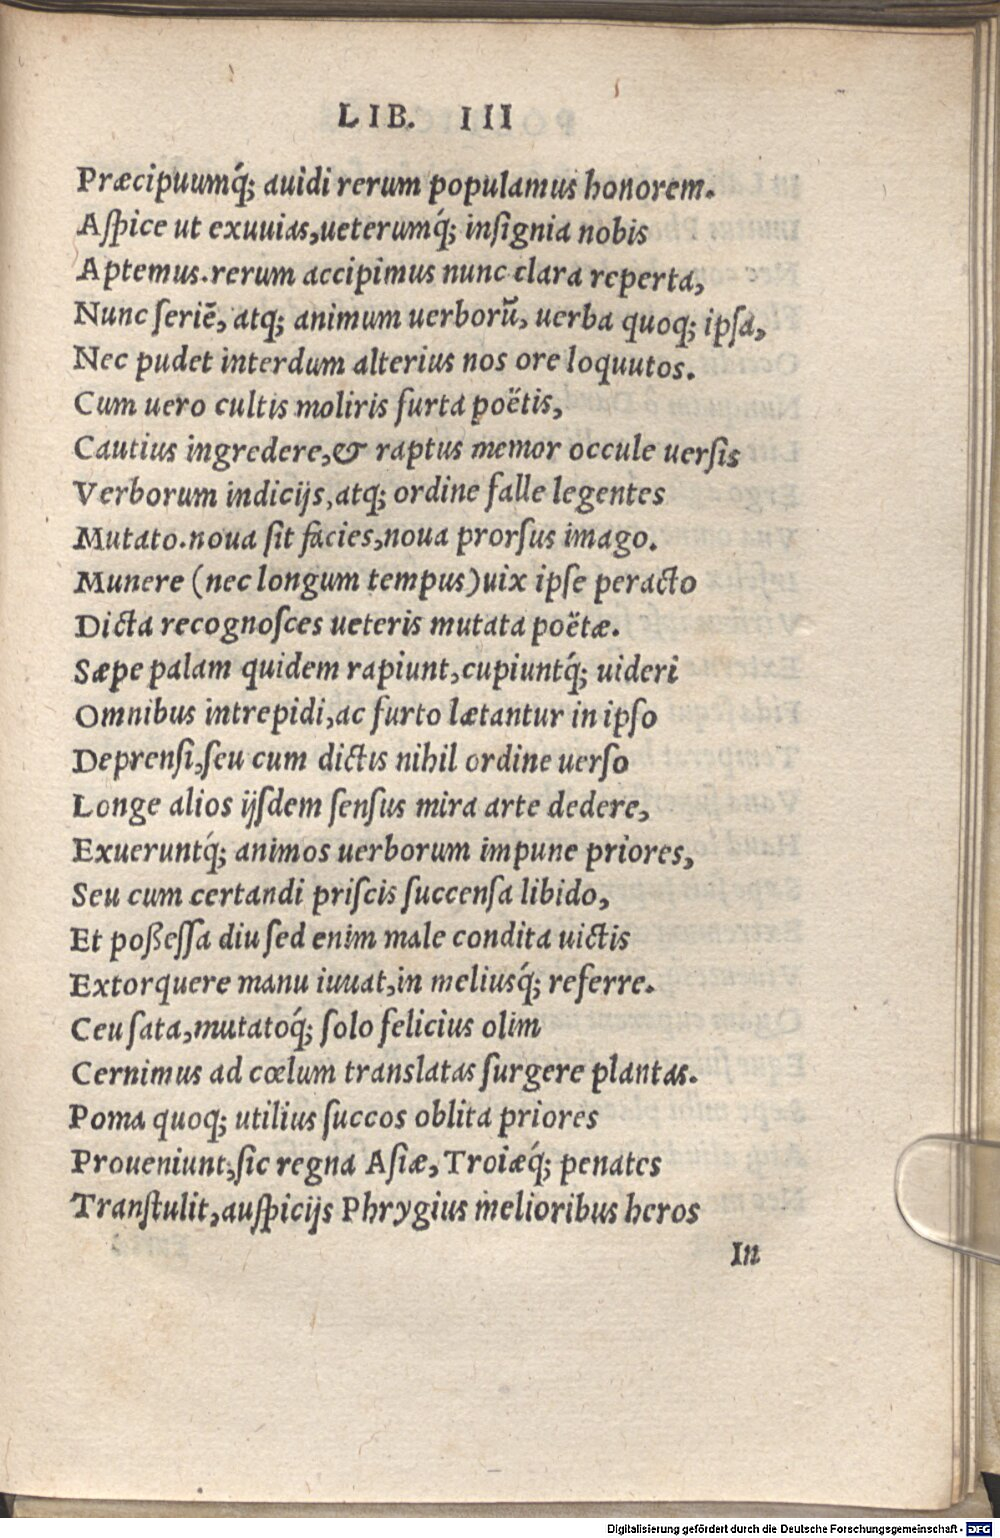 LIB. III
Præcipuumq́; auidi rerum populamus honorem.
Aſpice ut exuuias,ueterumq́; inſignia nobis
Aptemus.rerum accipimus nunc clara reperta,
Nunc ſeriē, atq; animum uerborū, uerba quoq; ipſa,
Nec pudet interdum alterius nos ore loquutos.
Cum uero cultis moliris furta poëtis,
Cautius ingredere,& raptus memor occule uerſis
Verborum indicijs,atq; ordine falle legentes
Mutato.noua ſit facies,noua prorſus imago.
Munere (nec longum tempus)uix ipſe peracto
Dicta recognoſces ueteris mutata poëtæ.
Sæpe palam quidem rapiunt,cupiuntq́; uideri
Omnibus intrepidi,ac furto lætantur in ipſo
Deprenſi,ſeu cum dictis nihil ordine uerſo
Longe alios ijſdem ſenſus mira arte dedere,
Exueruntq́; animos uerborum impune priores,
Seu cum certandi priſcis ſuccenſa libido,
Et poßeſſa diu ſed enim male condita uictis
Extorquere manu iuuat,in meliusq́; referre.
Ceu ſata,mutatoq́; ſolo felicius olim
Cernimus ad cœlum translatas ſurgere plantas.
Poma quoq; utilius ſuccos oblita priores
Proueniunt,ſic regna Aſiæ,Troiæq́; penates
Tranſtulit,auſpicijs Phrygius melioribus heros
In
Digitalisierung gefördert durch die Deutsche Forschungsgemeinschaft - DFG